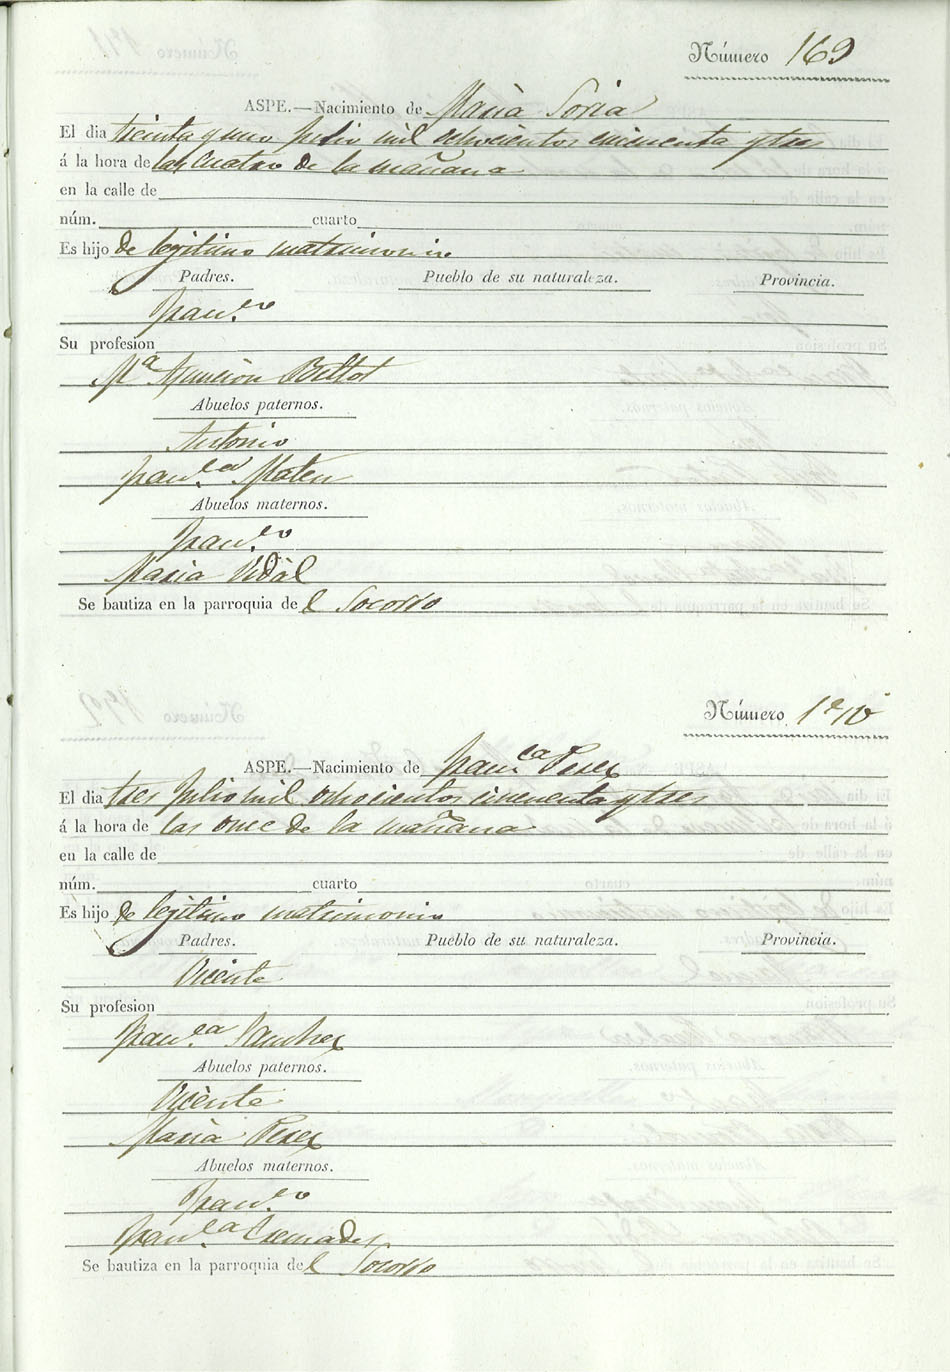 Número 169
ASPE.—Nacimiento de Maria Soria
El dia treinta y uno Julio mil ochocientos cincuenta y tres
á la hora de las cuatro de la mañana
en la calle de
núm. cuarto
Es hijo de legitimo matrimonio
Padres. Pueblo de su naturaleza. Provincia.
Fran.co
Su profesion
Mª Asuncion Bellot
Abuelos paternos.
Antonio
Fran.ca Mateu
Abuelos maternos.
Fran.co
Maria Vidal
Se bautiza en la parroquia del Socorro
Número 170
ASPE.—Nacimiento de Franca Perez
El dia tres Julio mil ochocientos cincuenta y tres
á la hora de las once de la mañana
en la calle de
núm. cuarto
Es hijo de legitimo matrimonio
Padres. Pueblo de su naturaleza. Provincia.
Vicente
Su profesion
Fran.ca Sanchez
Abuelos paternos.
Vicente
Maria Perez
Abuelos maternos.
Fran.co
Fran.ca
Se bautiza en la parroquia del Socorro